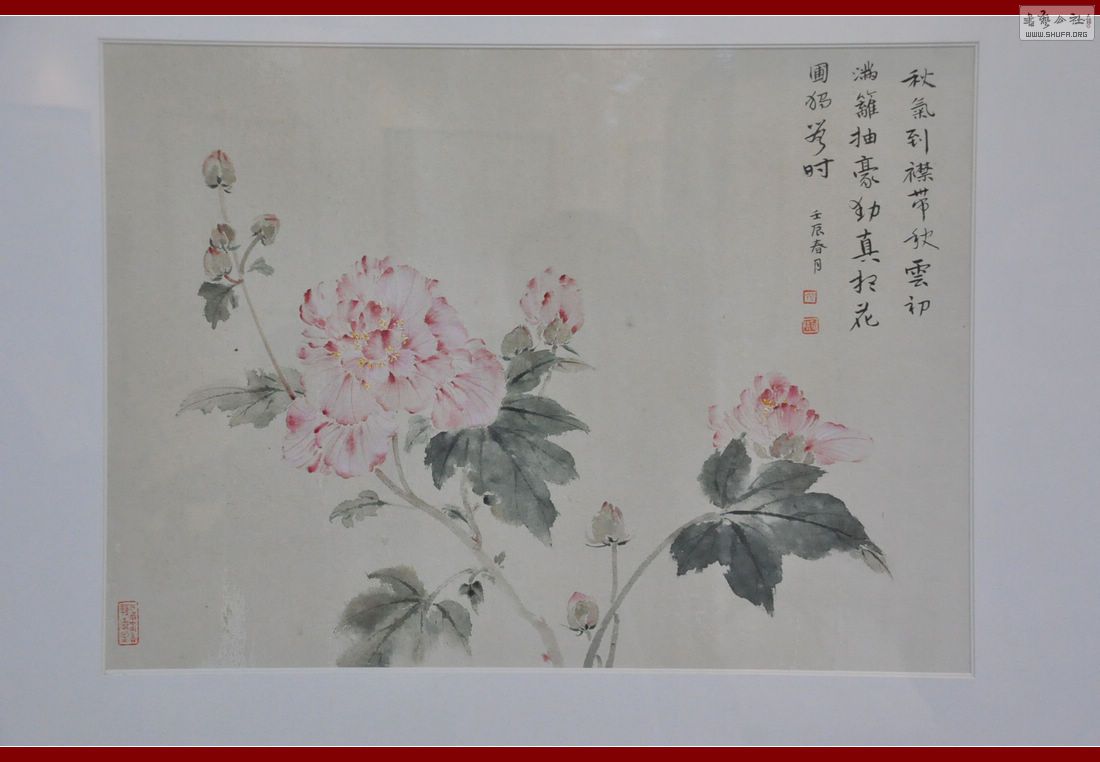 秋氣到襟帶秋雲初
满籬抽豪劲真拒花
圃獨芳时
壬辰春月
書藝公社
WWW.SHUFA.ORG